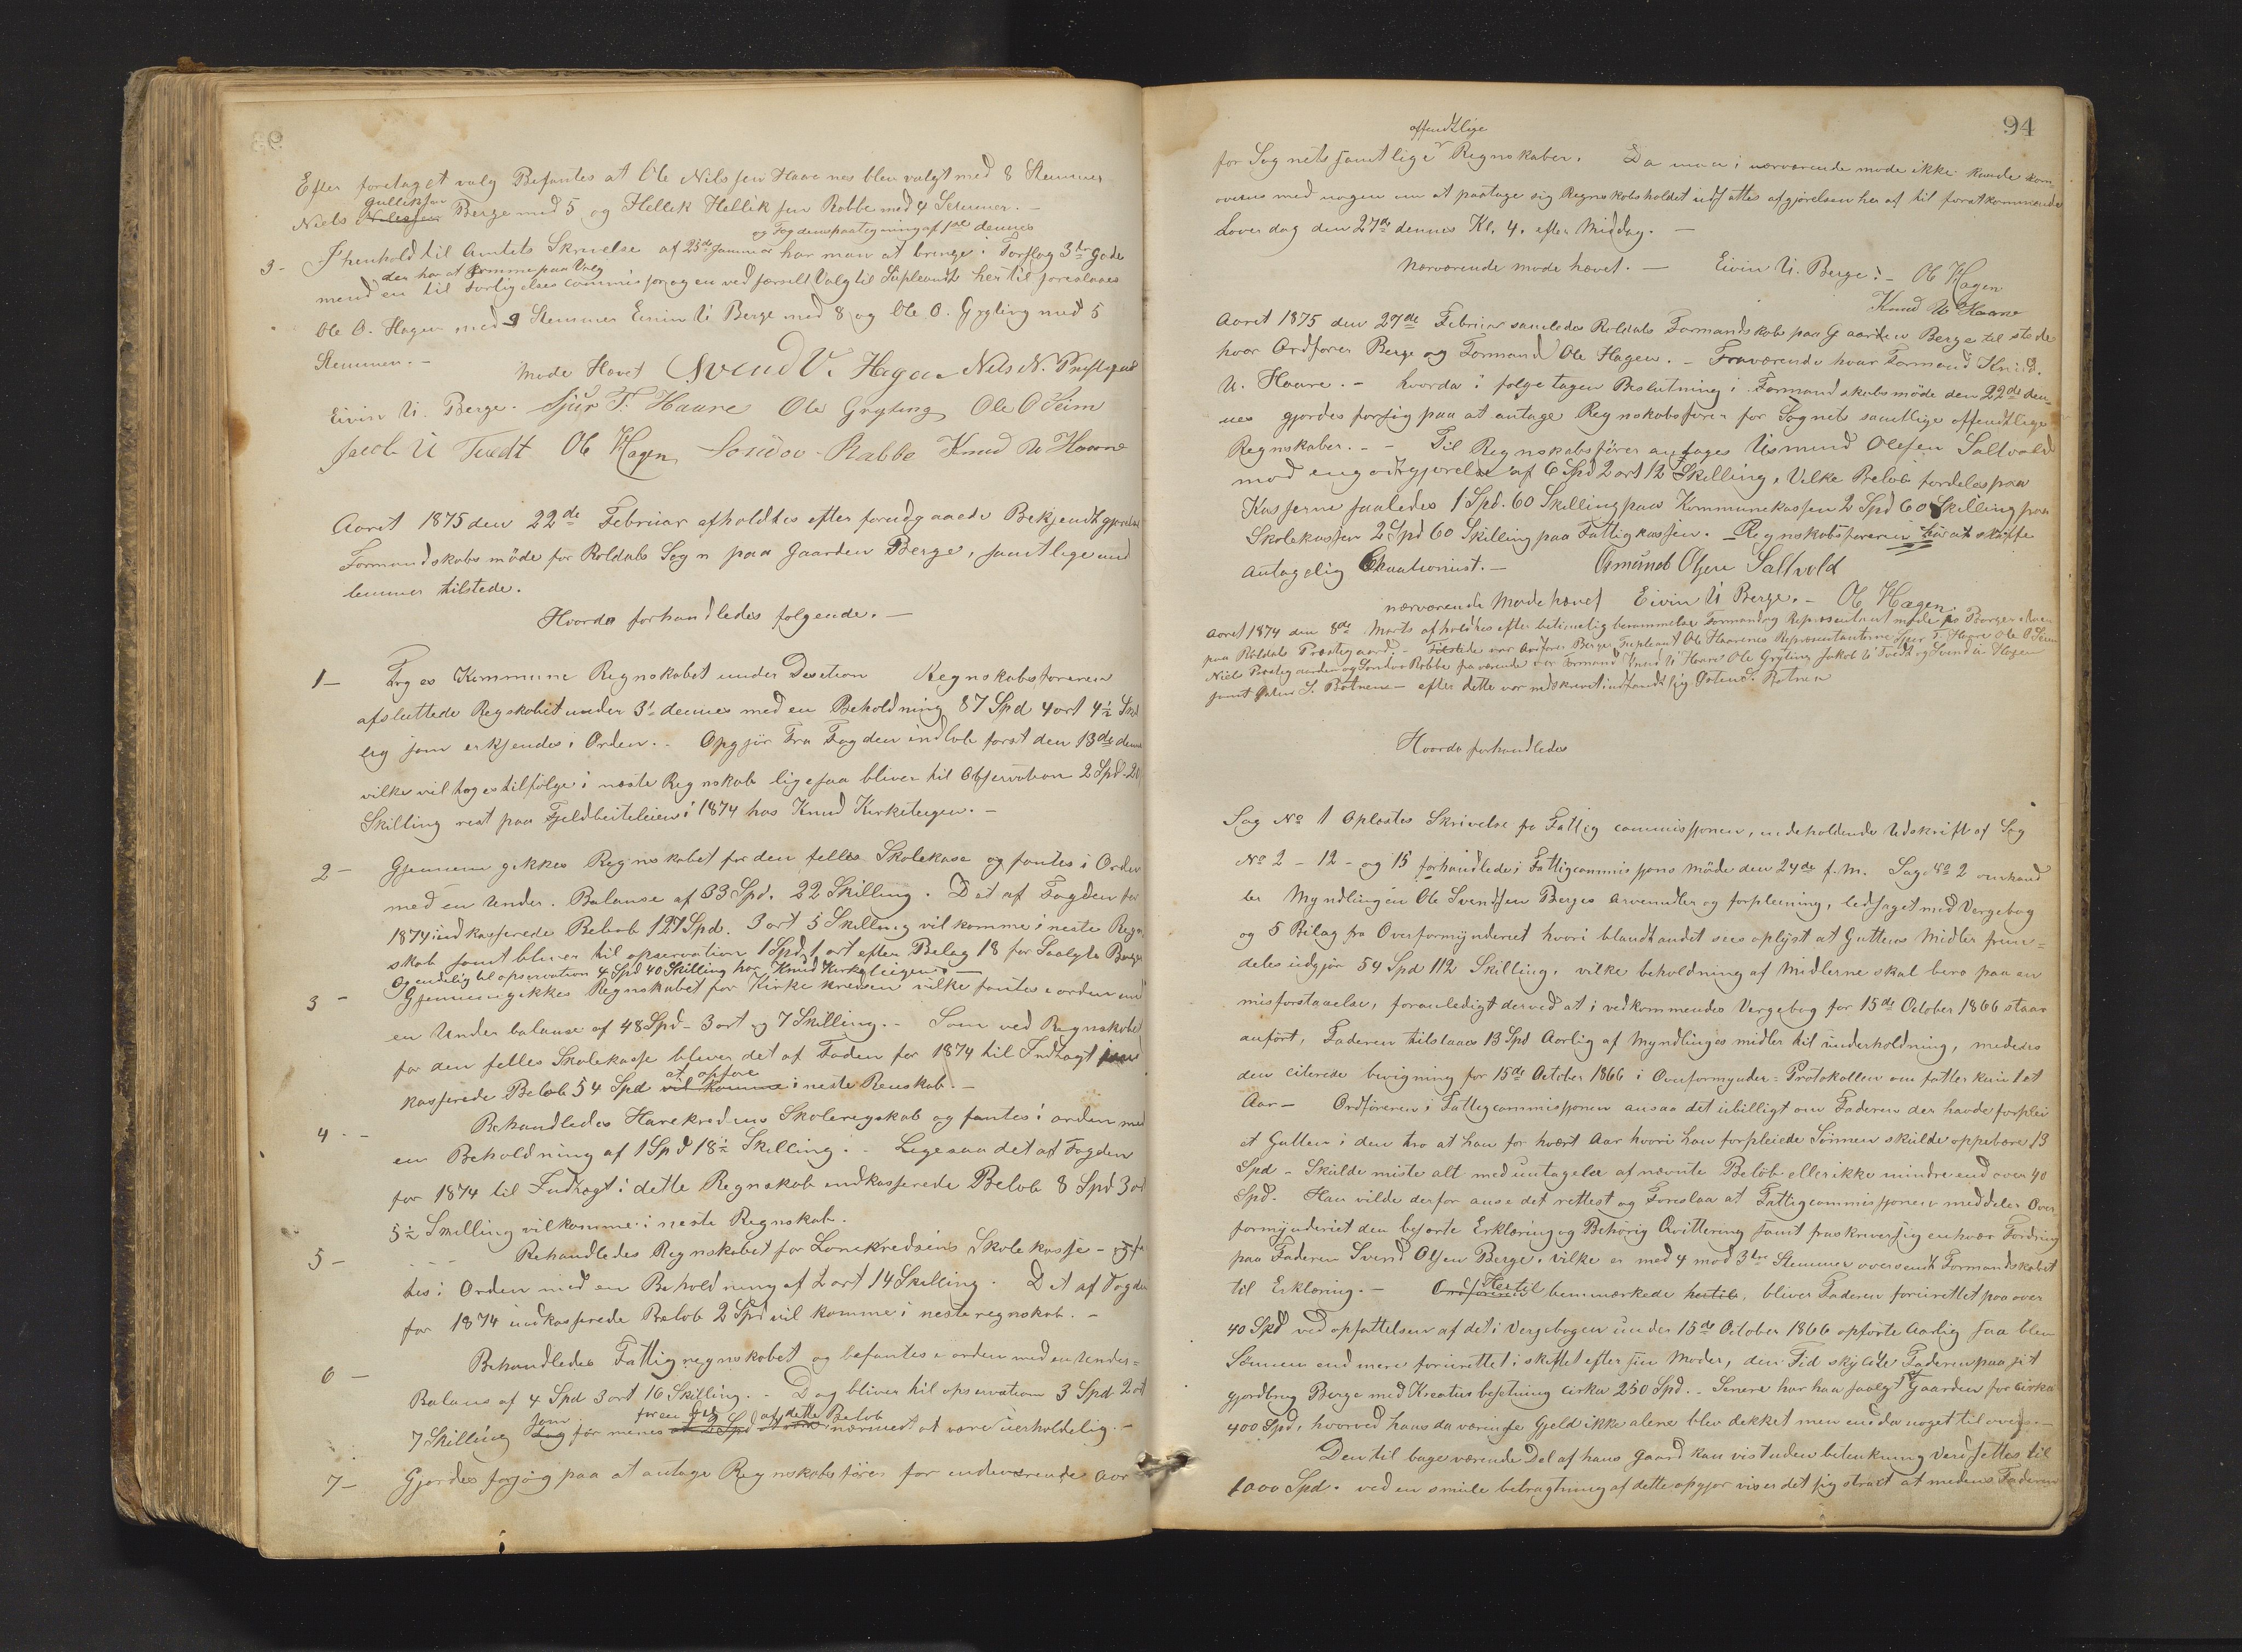 Efter foretaget valg Befantes at Ole Nilssen Haarenes blev valgt med 8 Stemmer
Niels Nilssen Gulliksen Berge med 5 og Hellik Hellik sen Rabbe med 4 Stemmer. -
og Fogdens paategning af 1ste dennes
3- I henhold til Amtets Skrivelse af 23de Januar har man at bringe i Forslag 3de gode
der har at komme paa Valg
mend en til Forligelses commisjon og en ved særsilt Valg til Supleant hertil foreslaaes
Ole O. Hagen med 9 Stemmer Eivin U Berge med 8 og Ole O. Grytting med 5
Stemmer. -
Møde Hævet Svend V. Hagen Nels N. Prestegard
Eivin U. Berge. Sjur T. Haare Ole Grytting Ole O Seim
Jacob U Tvedt Ole Hagen Sondov Rabbe Knud U Haare
Aaret 1875 den 22de Februar afholdtes efter forudgaaede Bekjendtgjørelse
Formandskabs møde for Roldals Sogn paa Gaarden Berge, samtlige med
lemmer tilstede.
Hvorda forhandledes følgende. -
1- Toges Kommune Regnskabet under Desetion Regnskabsføreren
afsluttede Regskabet under 31 dennes med en Beholdning 87 Spd 4 ort 4½ Skil
ling som erkjendes i Orden. - Opgjør Fra Fogden indløb først den 13de denne
vilke vil tages tilfølge i neste Regnskab ligesaa bliver til Observation 2 Spd. 20
Skilling rest paa Fjeldbeiteleien i 1874 hos Knud Kirketeigen. -
2- Gjennem gikkes Regnskabet for den felles Skolekase og fantes i Orden
med en Under. Balanse af 33 Spd. 22 Skilling. Det af Fogden for
1874 indkasserede Beløb 127 Spd. 3 ort 5 Skilling vil komme i neste Regn
skab samt bliver til opservation 1 Spd. 1 ort efter Bilag 18 for Saalgte Bøger
og endelig til opservation 4 Spd 40 Skilling hos Knud Kirketeigen. -
3- Gjennemgikkes Regnskabet for Kirke kredsen vilke fantes i orden med
en Under balanse af 48 Spd - 3 ort og 7 Skilling. - Som ved Regnskabet
for den felles Skolekasse bliver det af Foden for 1874 til Indtægt ind
kasserede Beløb 54 Spd vil komme at opføre i neste Renskab. -
4- Behandledes Harekredsens Skoleregskab og fantes i orden med
en Beholdning af 1 Spd 18½ Skilling. - Ligesaa det af Fogden
for 1874 til Indtægt i dette Regnskab indkasserede Beløb 8 Spd 3 ort
5½ Skilling vil komme i neste Regnskab.
5- Behandledes Regnskabet for Lonekredsens Skole kasse - og fa
tes i Orden med en Beholdning af 2 ort 14 Skilling. Det af Fogden
for 1874 indkasserede Beløb 2 Spd vil komme i neste regnskab. -
6- Behandledes Fattigregnskabet og befantes i orden med en Under-
Balans af 4 Spd 3 ort 16 Skilling. - Dog bliver til opservation 3 Spd 2 ort
7 Skilling som før menes for en del af dette Beløb nærmest at være uerholdelig. -
7- Gjordes forsøg paa at antage Regnskabsfører for indeværende Aar
94
offendtlige
for Sognets samtlige Regnskaber. Da man i nærværende møde ikke kunde kom-
overens med nogen om at paatage sig Regnskabsholdet udsattes afgjørelsen her af til førstkommende
Løverdag den 27de dennes Kl. 4. efter Middag. -
Nærværende møde hævet. - Eivin U. Berge. - Ole Hagen
Knud U Haare
Aaret 1875 den 27de Februar samledes Roldals Formandskab paa Gaarden Berge til stede
hvar Ordfører Berge og Formand Ole Hagen. - Fraværende hvar Formand Knud.
U. Haare. - Hvorda i følge tagen Beslutning i Formandskabsmøde den 22de den-
nes gjordes forsøg paa at antage Regnskabsfører for Sognets samtlige offendtlige
Regnskaber. - Til Regnskabsfører antages Asmund Olesen Saltvold
mod en godtgjørelse af 6 Spd 2 ort 12 Skilling, Vilke Beløb fordeles paa
Kasserne saaledes 1 Spd. 60 Skilling paa Kommunekassen 2 Spd 60 Skilling paa
Skolekassen 2 Spd 60 Skilling paa Fattigkassen. - Regnskabsføreren har at skaffe
antagelig Chautionist. - Asmund Olsen Saltvold
nærværende Møde hævet Eivin U Berge. - Ole Hagen
Aaret 1874 den 8de Marts afholdtes efter betimelig berammelse Formand og Representant møde
paa Roldals Prestegaard. - Tilstede var Ordfører Berge Supleant Ole Haarenes Representanterne Sjur T. Haare Ole O Seim
Niels Prestegaarden og Sondov Rabbe fraværende var Formand Knud U Haare Ole Grytting Jakob U Tvedt og Svend V Hagen
samt Østen S. Botnene - efter dette var nedskrevet indfandt sig Østen S. Botnen
Hvorda forhandledes
Sag No 1 Oplæstes Skrivelse fra Fattig commissjonen, indeholdende Udskrift af Sag
No 2 - 12 - og 15 forhandlede i Fattigcommissjons møde den 24de f.m. Sag No 2 omhand
ler Myndlingen Ole Svendsen Berges arvemidler og forpleining, ledsaget med Vergebog
og 5 Bilag fra Overformynderiet hvori blandt andet sees oplyst at Guttens Midler frem-
deles udgjør 54 Spd 112 Skilling. vilke beholdning af Midlerne skal bero paa en
misforstaaelse, foranledigt derved at i vedkommendes Vergebog for 15de October 1866 staar
anført, Faderen tilstaaes 13 Spd Aarlig af Myndlinges midler til underholdning, medens
den citerede bevigning for 15de October 1866 i Overformynder-Protokollen om fatter kun 1 et
Aar - Ordføreren i Fattigcommissjonen ansaa det ubilligt om Faderen der havde forplei
et Gutten i den tro at han for hvært Aar hvori han forpleiede Sønnen skulde oppebære 13
Spd - Skulde miste alt med untagelse af nævnte Beløb eller ikke mindre end over 40
Spd. Han vilde derfor anse det rettest og Foreslaa at Fattigcommissjonen meddeler Over
formynderiet den besørte Erklæring og Behørig Qvittering samt fraskriver sig enhvær Fordring
paa Faderen Svend Olsen Berge. vilke er med 4 mod 3tre Stemmer oversendt Formandskabet
til Erklæring. - Ordføreren Hertil bemmærkede hertil, bliver Faderen forurettet paa over
40 Spd ved opfattelsen af det i Vergebogen under 15de October 1866 opførte Aarlig saa blev
Sønnen end mere forurettet i skiftet efter sin Moder, den Tid skyldte Faderen paa sit
gjordbrug Berge med Kreaturbesetning cirka 250 Spd. - Senere har han saalgt Gaarden for cirka
400 Spd, hvorved hans da værende Gjeld ikke alene blev dekket men enda noget tilovers. -
Den til bage værende Del af hans gaard kan vist uden betenkning verdsettes til
1000 Spd. ved en smule betragtning af dette opgjør viser det sig strax at medens Faderen